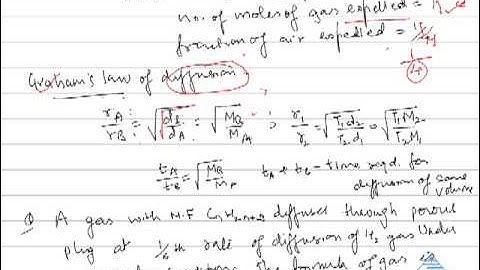 no. of moles of gas expelled =
fraction of air expelled =
Graham's law of diffusion
rA/rB = √(dB/dA) = √(MB/MA) ; r1/r2 = √(T1d2/T2d1) = √(T1M2/T2M1)
tA/tB = √(MB/MA) tA & tB - time reqd. for
diffusion of same
volume
Q A gas with M.F CnH2n+2 diffuses through porous
plug at 1/6th rate of diffusion of H2 gas under
conditions. The formula of gas is